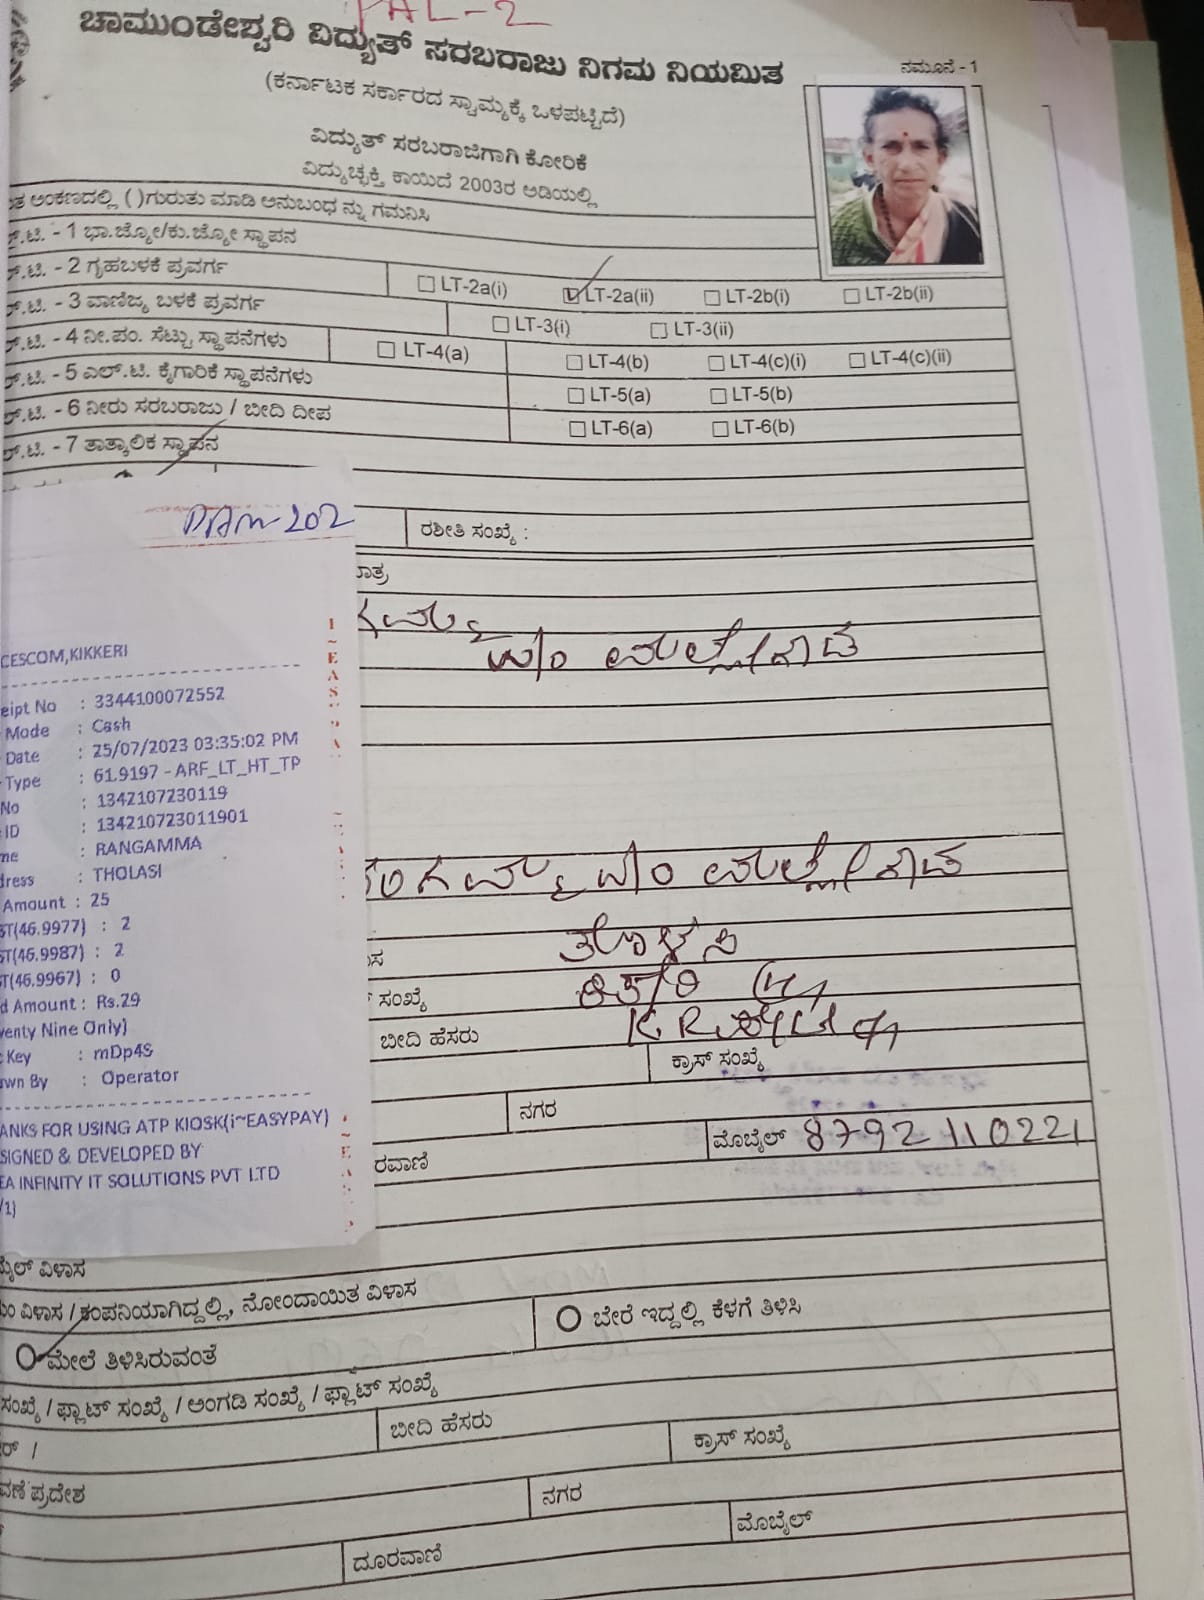 PAL-2
ಚಾಮುಂಡೇಶ್ವರಿ ವಿದ್ಯುತ್ ಸರಬರಾಜು ನಿಗಮ ನಿಯಮಿತ
ನಮೂನೆ - 1
(ಕರ್ನಾಟಕ ಸರ್ಕಾರದ ಸ್ವಾಮ್ಯಕ್ಕೆ ಒಳಪಟ್ಟಿದೆ)
ವಿದ್ಯುತ್ ಸರಬರಾಜಿಗಾಗಿ ಕೋರಿಕೆ
ವಿದ್ಯುಚ್ಛಕ್ತಿ ಕಾಯಿದೆ 2003ರ ಅಡಿಯಲ್ಲಿ
ತ ಅಂಕಣದಲ್ಲಿ ( )ಗುರುತು ಮಾಡಿ ಅನುಬಂಧ ನ್ನು ಗಮನಿಸಿ
.ಟಿ. - 1 ಭಾ.ಜ್ಯೋ/ಕು.ಜ್ಯೋ ಸ್ಥಾಪನ
.ಟಿ. - 2 ಗೃಹಬಳಕೆ ಪ್ರವರ್ಗ LT-2a(i) LT-2a(ii) LT-2b(i) LT-2b(ii)
.ಟಿ. - 3 ವಾಣಿಜ್ಯ ಬಳಕೆ ಪ್ರವರ್ಗ LT-3(i) LT-3(ii)
.ಟಿ. - 4 ನೀ.ಪಂ. ಸೆಟ್ಟು ಸ್ಥಾಪನೆಗಳು LT-4(a) LT-4(b) LT-4(c)(i) LT-4(c)(ii)
.ಟಿ. - 5 ಎಲ್.ಟಿ. ಕೈಗಾರಿಕೆ ಸ್ಥಾಪನೆಗಳು LT-5(a) LT-5(b)
.ಟಿ. - 6 ನೀರು ಸರಬರಾಜು / ಬೀದಿ ದೀಪ LT-6(a) LT-6(b)
.ಟಿ. - 7 ತಾತ್ಕಾಲಿಕ ಸ್ಥಾಪನ
ರಶೀತಿ ಸಂಖ್ಯೆ :
ಾತ್ರ
ಗಮ್ಮ
W/o ಮಲ್ಲೇಗೌಡ
ರಂಗಮ್ಮ W/o ಮಲ್ಲೇಗೌಡ
ಾಸ ತೊಳಸಿ
ಸಂಖ್ಯೆ
ಬೀದಿ ಹೆಸರು KRಪೇಟೆ
ಕ್ರಾಸ್ ಸಂಖ್ಯೆ
ನಗರ
ರವಾಣಿ ಮೊಬೈಲ್ 8792110221
CESCOM,KIKKERI
eipt No : 3344100072552
Mode : Cash
Date : 25/07/2023 03:35:02 PM
Type : 61.9197 - ARF_LT_HT_TP
No : 1342107230119
ID : 134210723011901
me : RANGAMMA
dress : THOLASI
Amount : 25
ST(46.9977) : 2
ST(46.9987) : 2
ST(46.9967) : 0
d Amount : Rs.29
venty Nine Only)
Key : mDp4S
wn By : Operator
ANKS FOR USING ATP KIOSK(i~EASYPAY)
SIGNED & DEVELOPED BY
EA INFINITY IT SOLUTIONS PVT LTD
/1)
ೈಲ್ ವಿಳಾಸ
ಂ ವಿಳಾಸ / ಕಂಪನಿಯಾಗಿದ್ದಲ್ಲಿ, ನೋಂದಾಯಿತ ವಿಳಾಸ
ಮೇಲೆ ತಿಳಿಸಿರುವಂತೆ ಬೇರೆ ಇದ್ದಲ್ಲಿ ಕೆಳಗೆ ತಿಳಿಸಿ
ಸಂಖ್ಯೆ / ಫ್ಲಾಟ್ ಸಂಖ್ಯೆ / ಅಂಗಡಿ ಸಂಖ್ಯೆ / ಫ್ಲಾಟ್ ಸಂಖ್ಯೆ
ಬೀದಿ ಹೆಸರು ಕ್ರಾಸ್ ಸಂಖ್ಯೆ
ವಣೆ ಪ್ರದೇಶ ನಗರ
ದೂರವಾಣಿ ಮೊಬೈಲ್